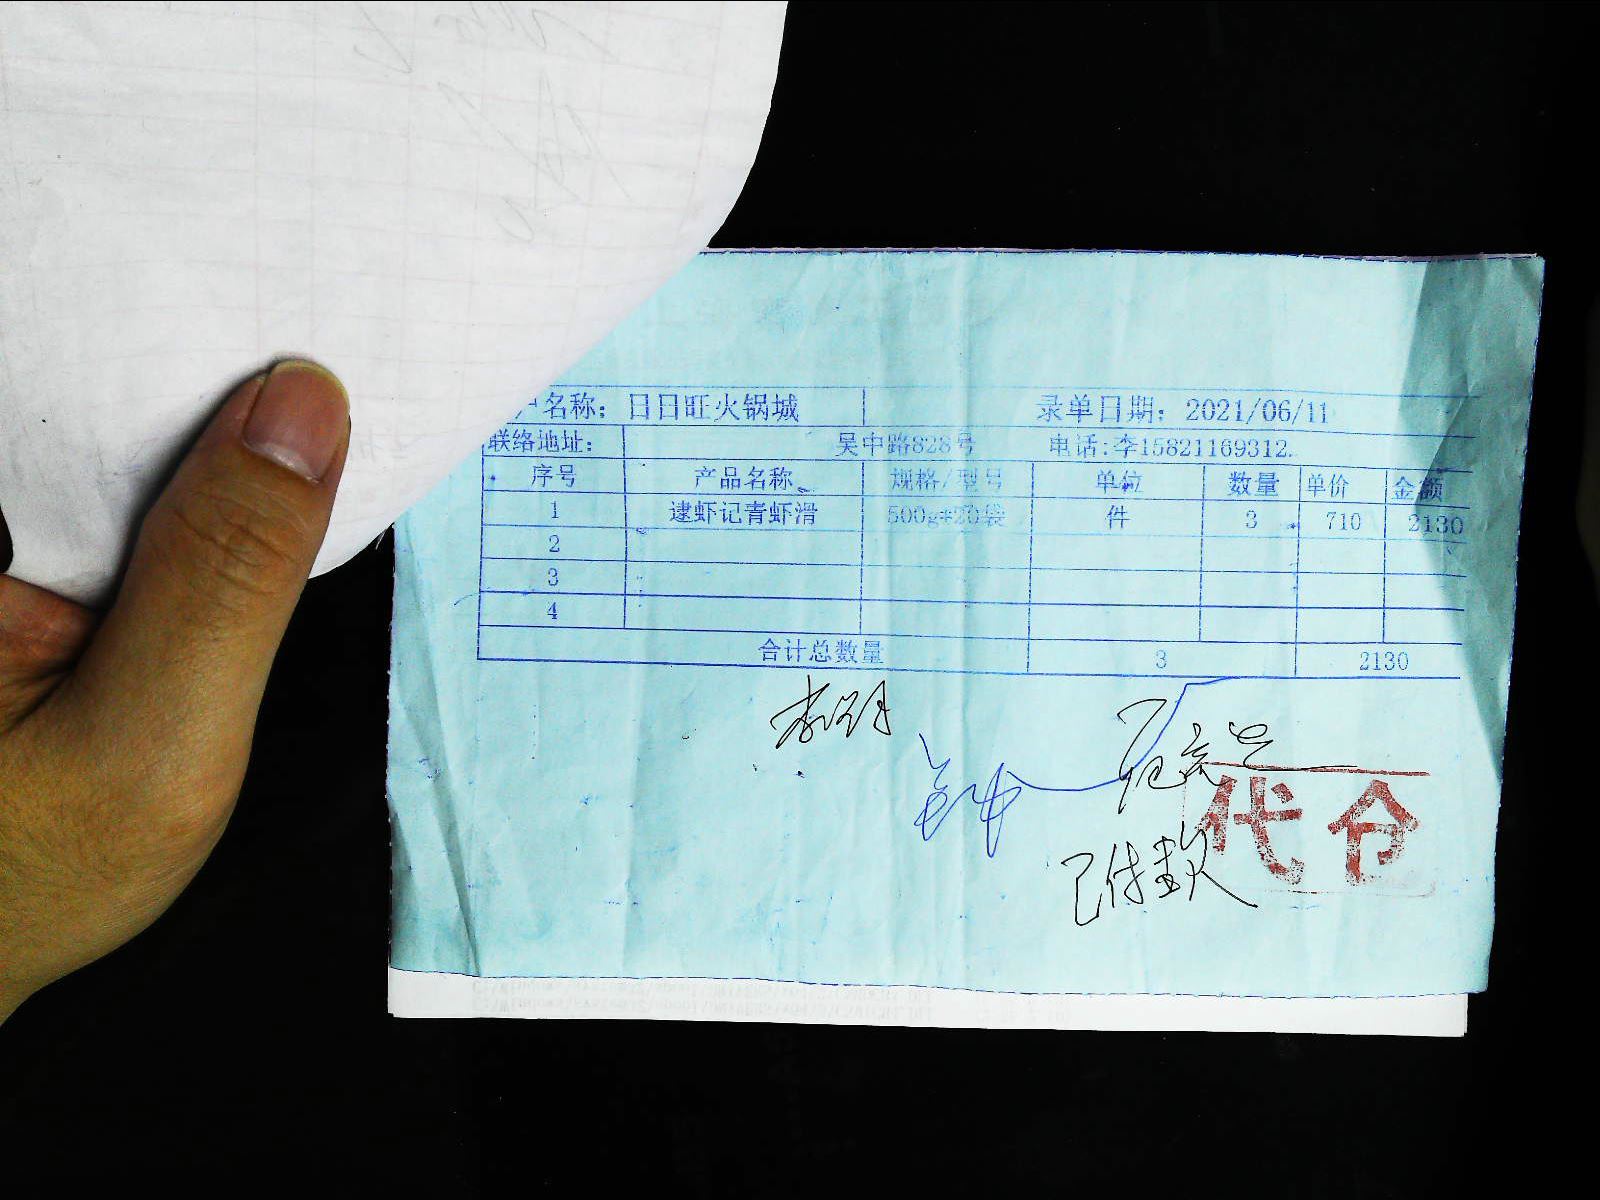 户名称：日日旺火锅城 录单日期：2021/06/11
联络地址： 吴中路828号 电话：李15821169312.
序号 产品名称 规格/型号 单位 数量 单价 金额
1 逮虾记青虾滑 500g*20袋 件 3 710 2130
2
3
4
合计总数量 3 2130
代仓
已付款